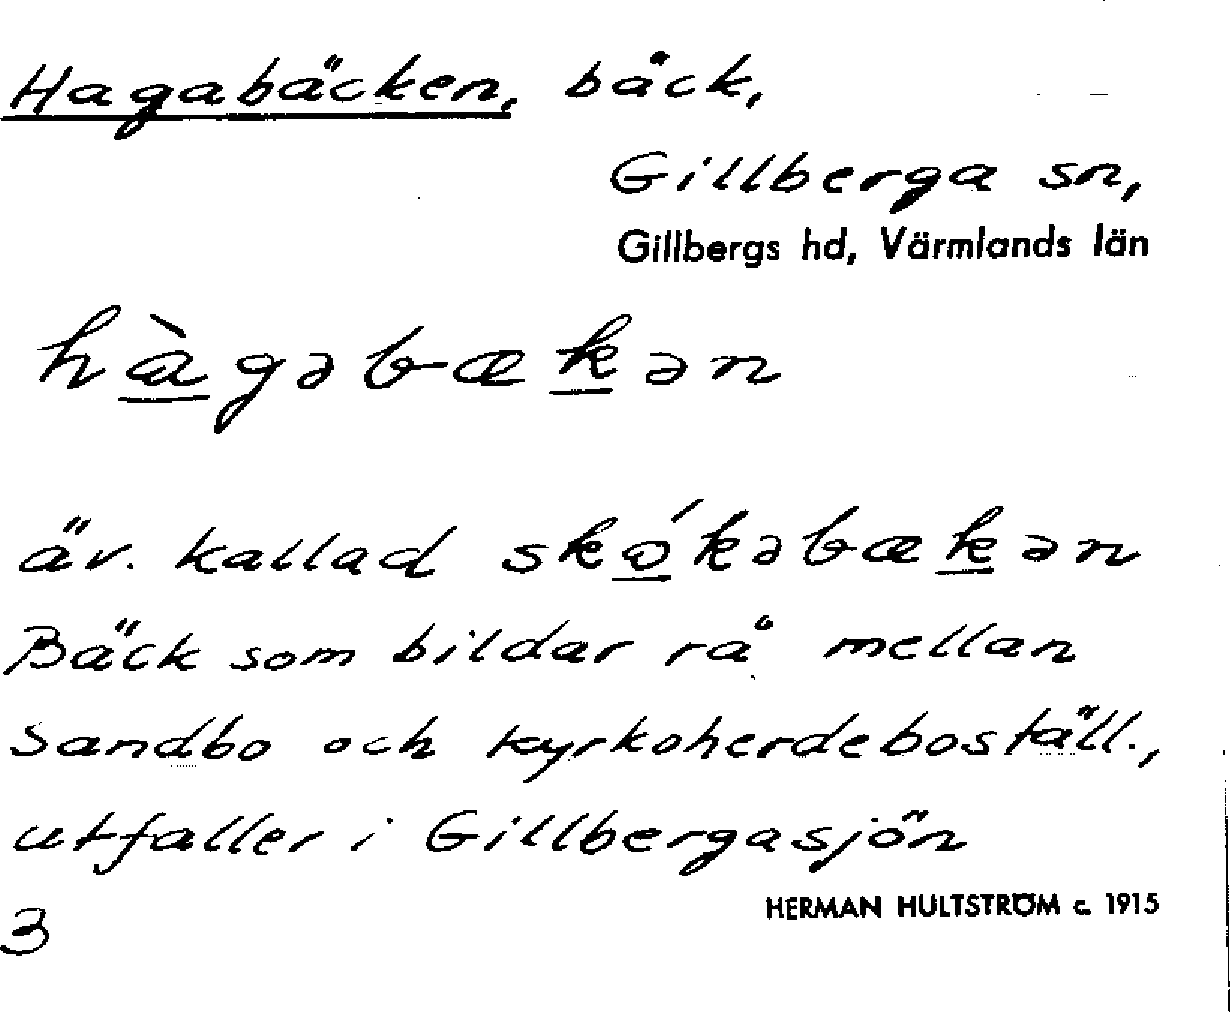 Hagabäcken, bäck,
Gillberga sn,
Gillbergs hd, Värmlands län
hàgəbækən
äv. kallad skǿkəbækən
Bäck som bildar rå mellan
Sandbo och kyrkoherdeboställ.,
utfaller i Gillbergasjön
HERMAN HULTSTRÖM c. 1915
3